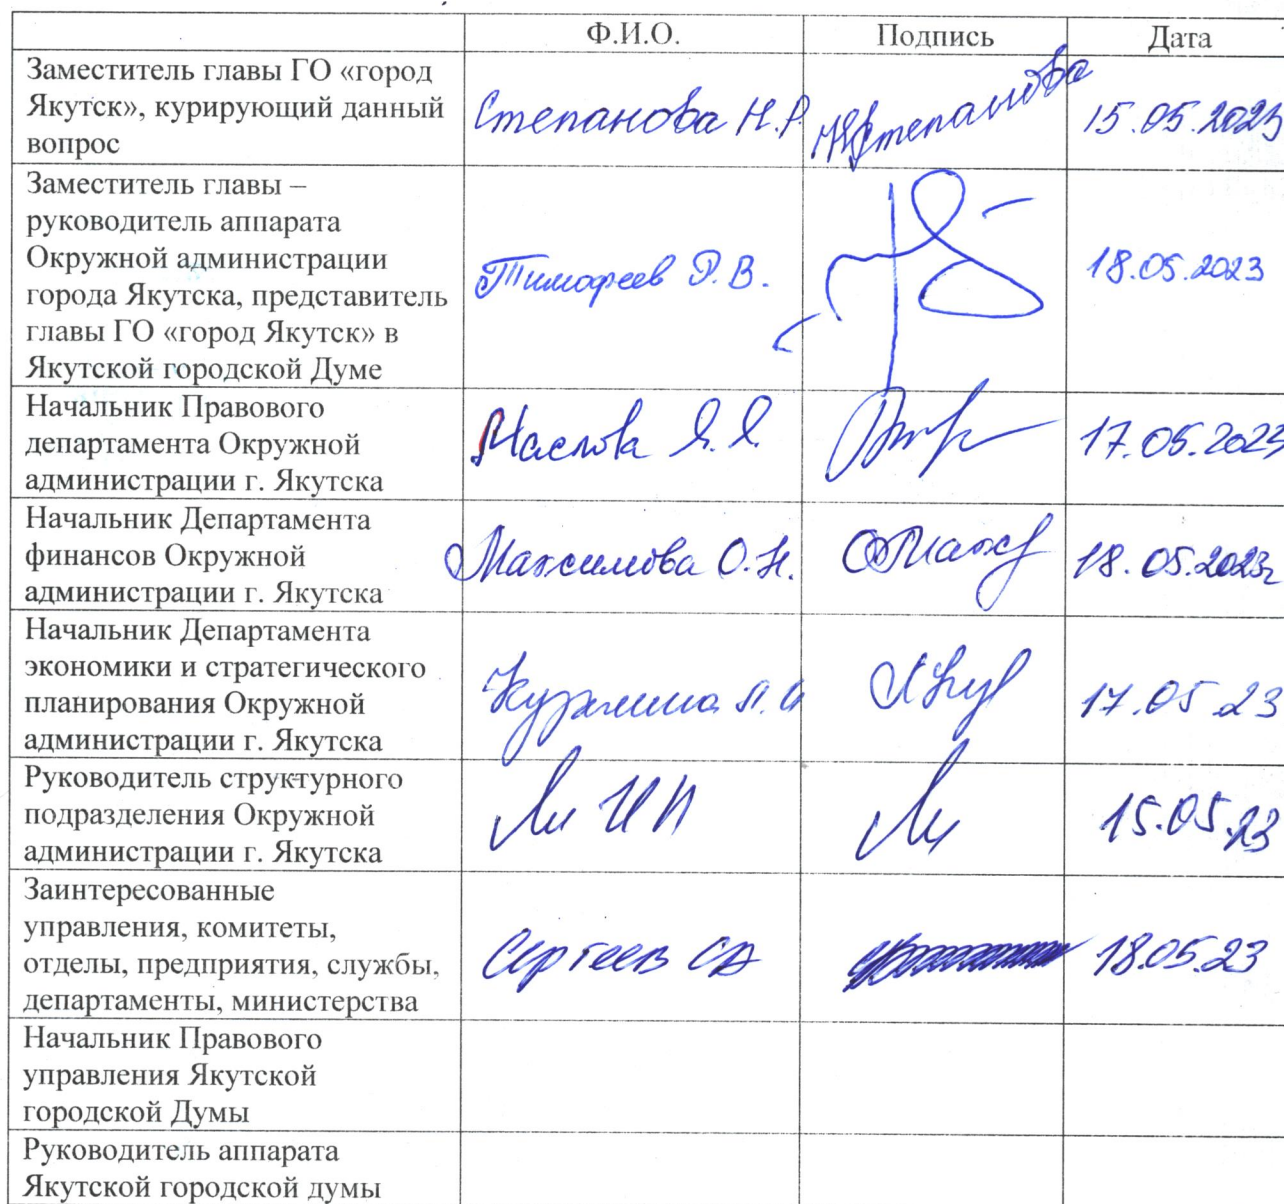 Ф.И.О. Подпись Дата
Заместитель главы ГО «город
Якутск», курирующий данный
вопрос
Степанова Н.Р. НРСтепанова 15.05.2023
Заместитель главы –
руководитель аппарата
Окружной администрации
города Якутска, представитель
главы ГО «город Якутск» в
Якутской городской Думе
Тимофеев Р.В. 18.05.2023
Начальник Правового
департамента Окружной
администрации г. Якутска
Маслова Я.Я. 17.05.2023
Начальник Департамента
финансов Окружной
администрации г. Якутска
Максимова О.Н. 18.05.2023г
Начальник Департамента
экономики и стратегического
планирования Окружной
администрации г. Якутска
Кузьмина 17.05.23
Руководитель структурного
подразделения Окружной
администрации г. Якутска
Ли И П Ли 15.05.23
Заинтересованные
управления, комитеты,
отделы, предприятия, службы,
департаменты, министерства
Сергеев СА 18.05.23
Начальник Правового
управления Якутской
городской Думы
Руководитель аппарата
Якутской городской думы